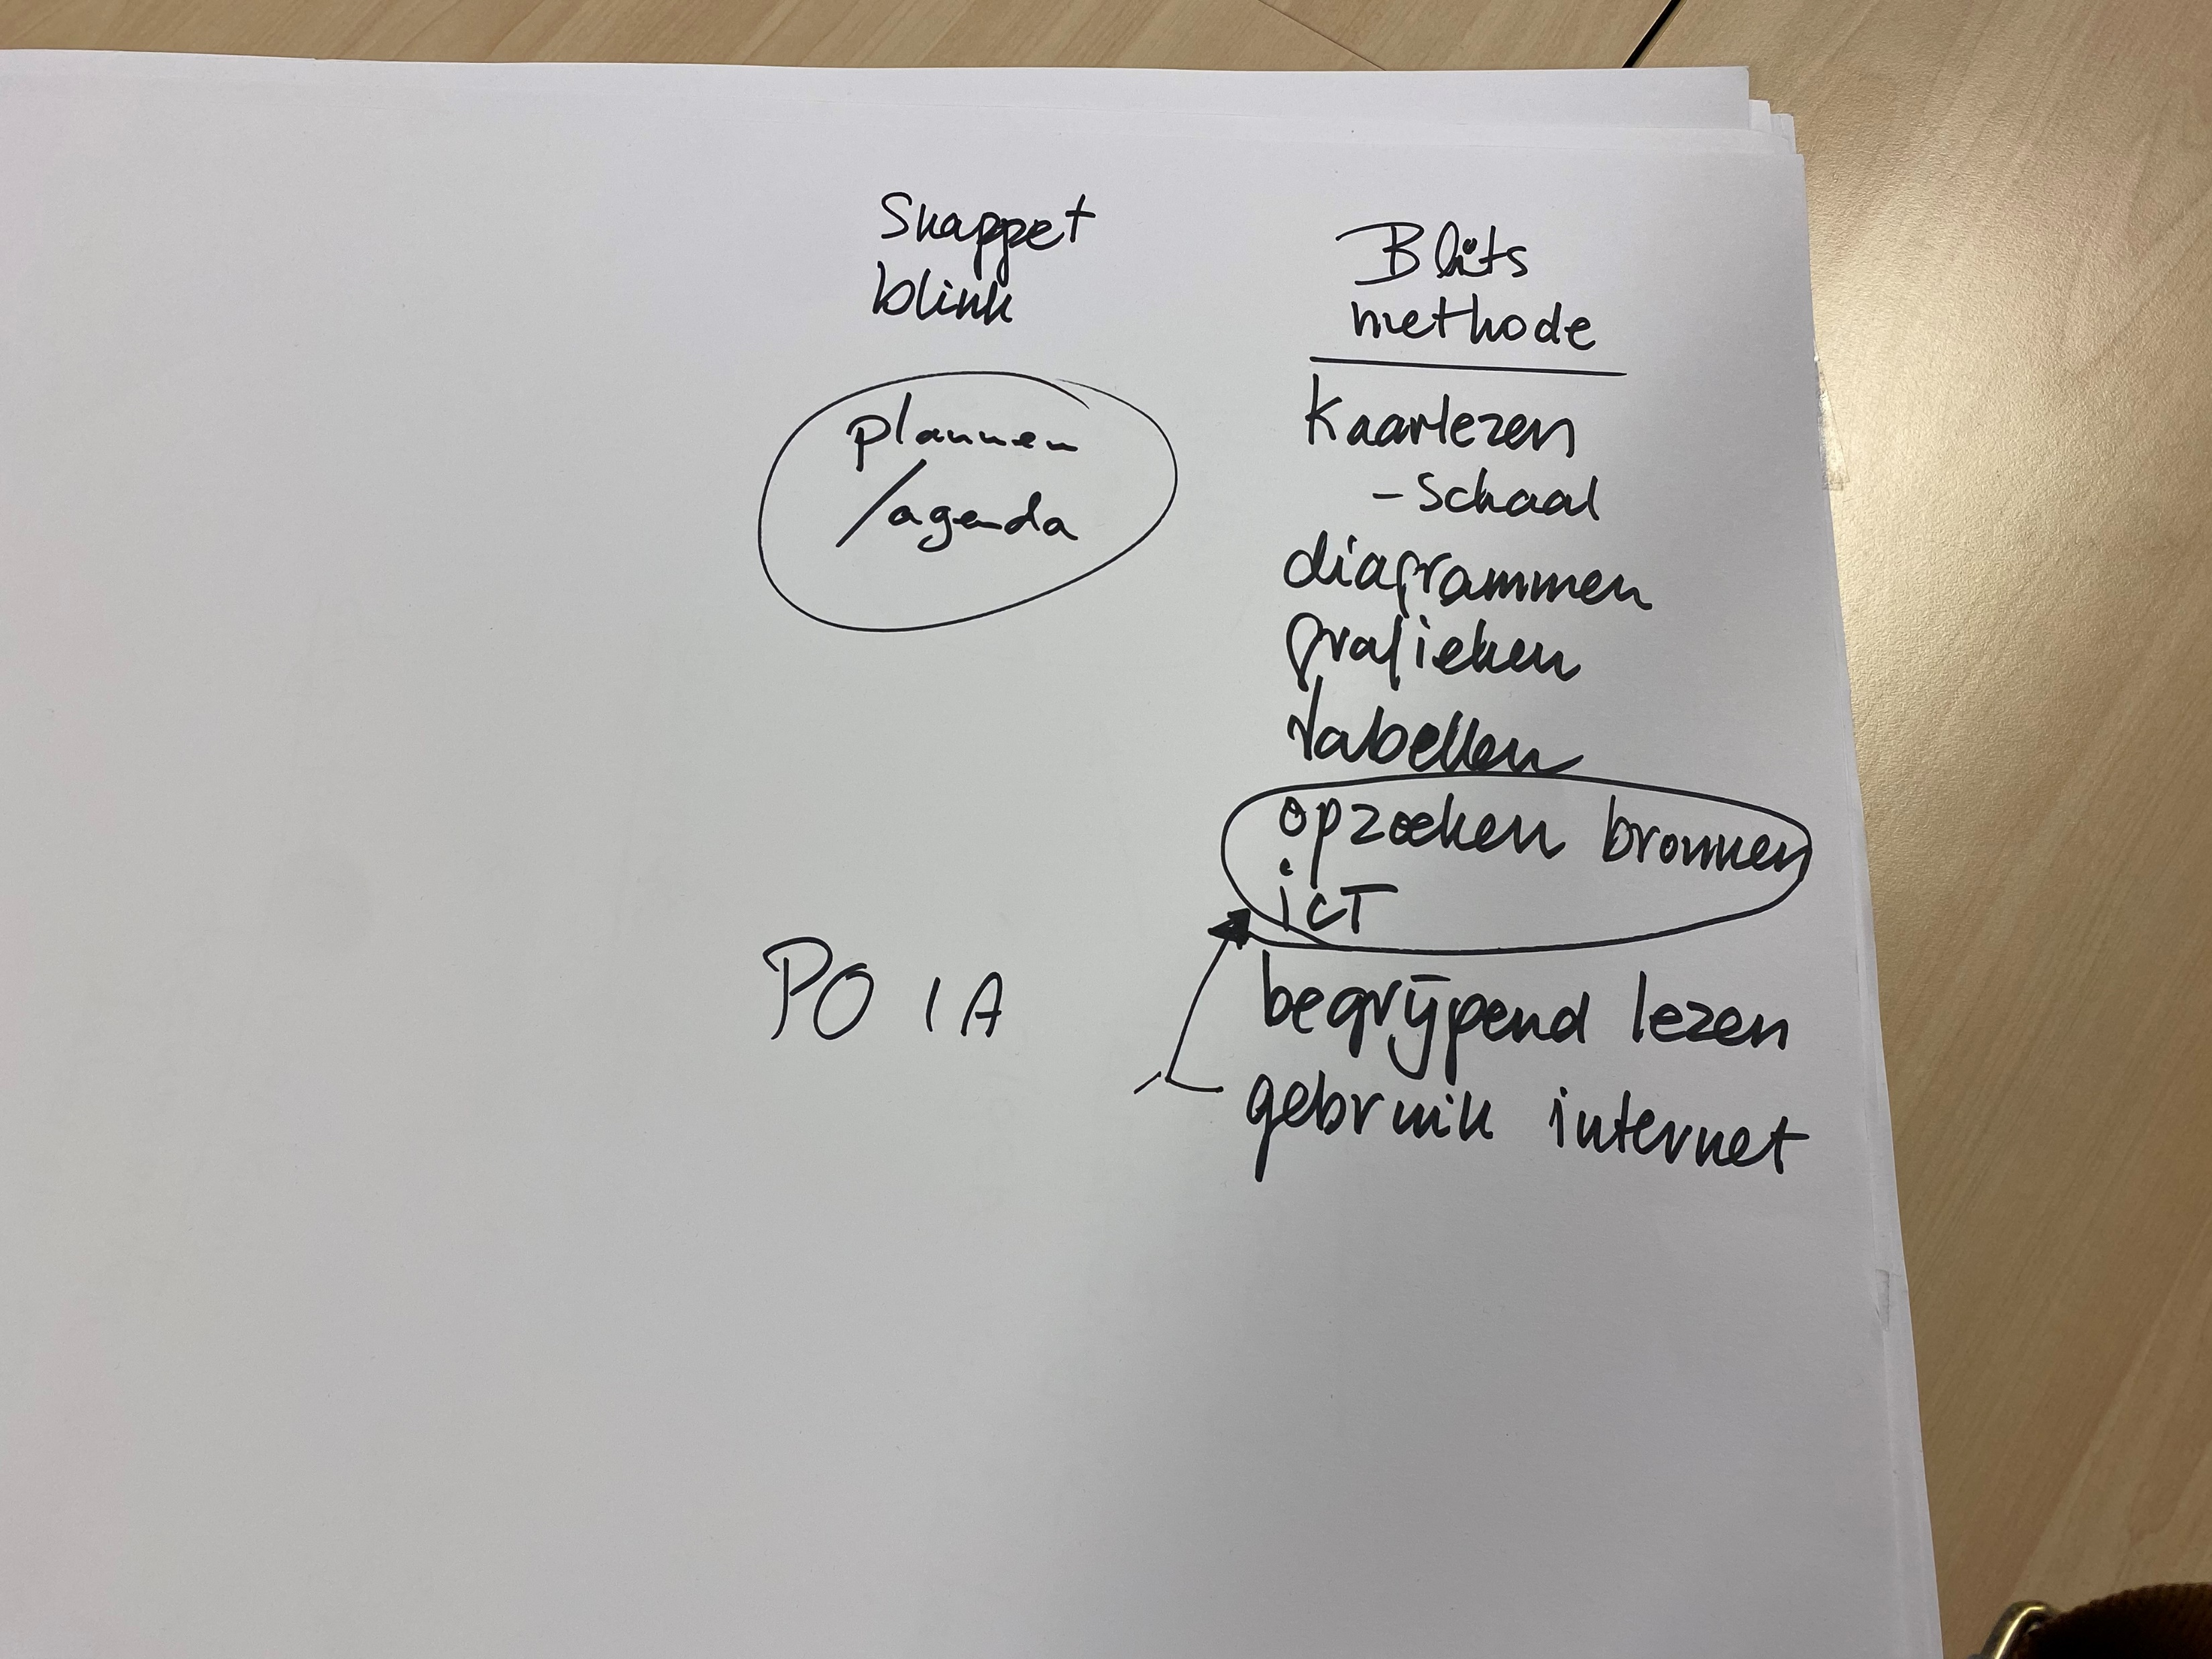 Snappet
blink
plannen
/agenda
PO 1A
Blits
methode
Kaartlezen
- schaal
diagrammen
grafieken
tabellen
opzoeken bronnen
icT
begrijpend lezen
gebruik internet